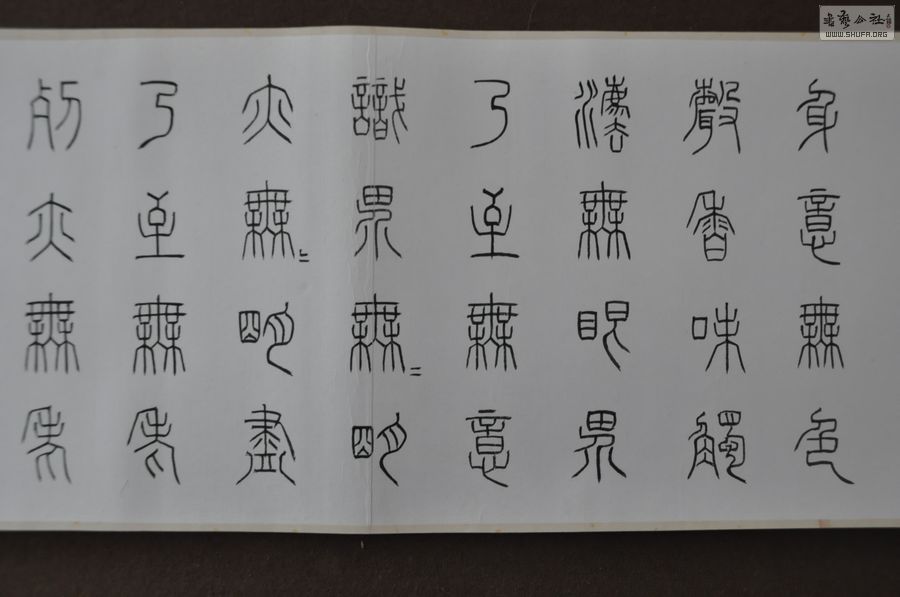 身意無色
聲香味觸
法無眼界
乃至無意
識界無〻明
亦無〻明盡
乃至無老
死亦無老
書藝公社
WWW.SHUFA.ORG